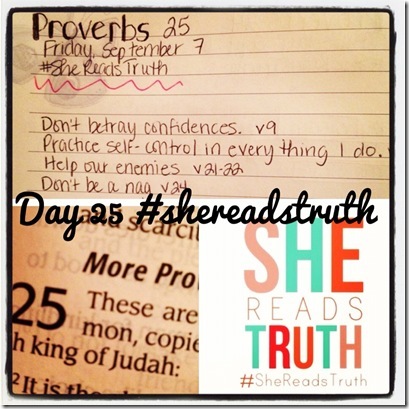 Proverbs 25
Friday, September 7
#SheReadsTruth
Don't betray confidences. v9
Practice self-control in everything I do. v
Help our enemies v21-22
Don't be a nag v24
Day 25 #shereadstruth
and scarcit
of bo
More Pro
25 These are
mon, copie
h king of Judah:
2 It is the
SHE
READS
TRUTH
#SheReadsTruth